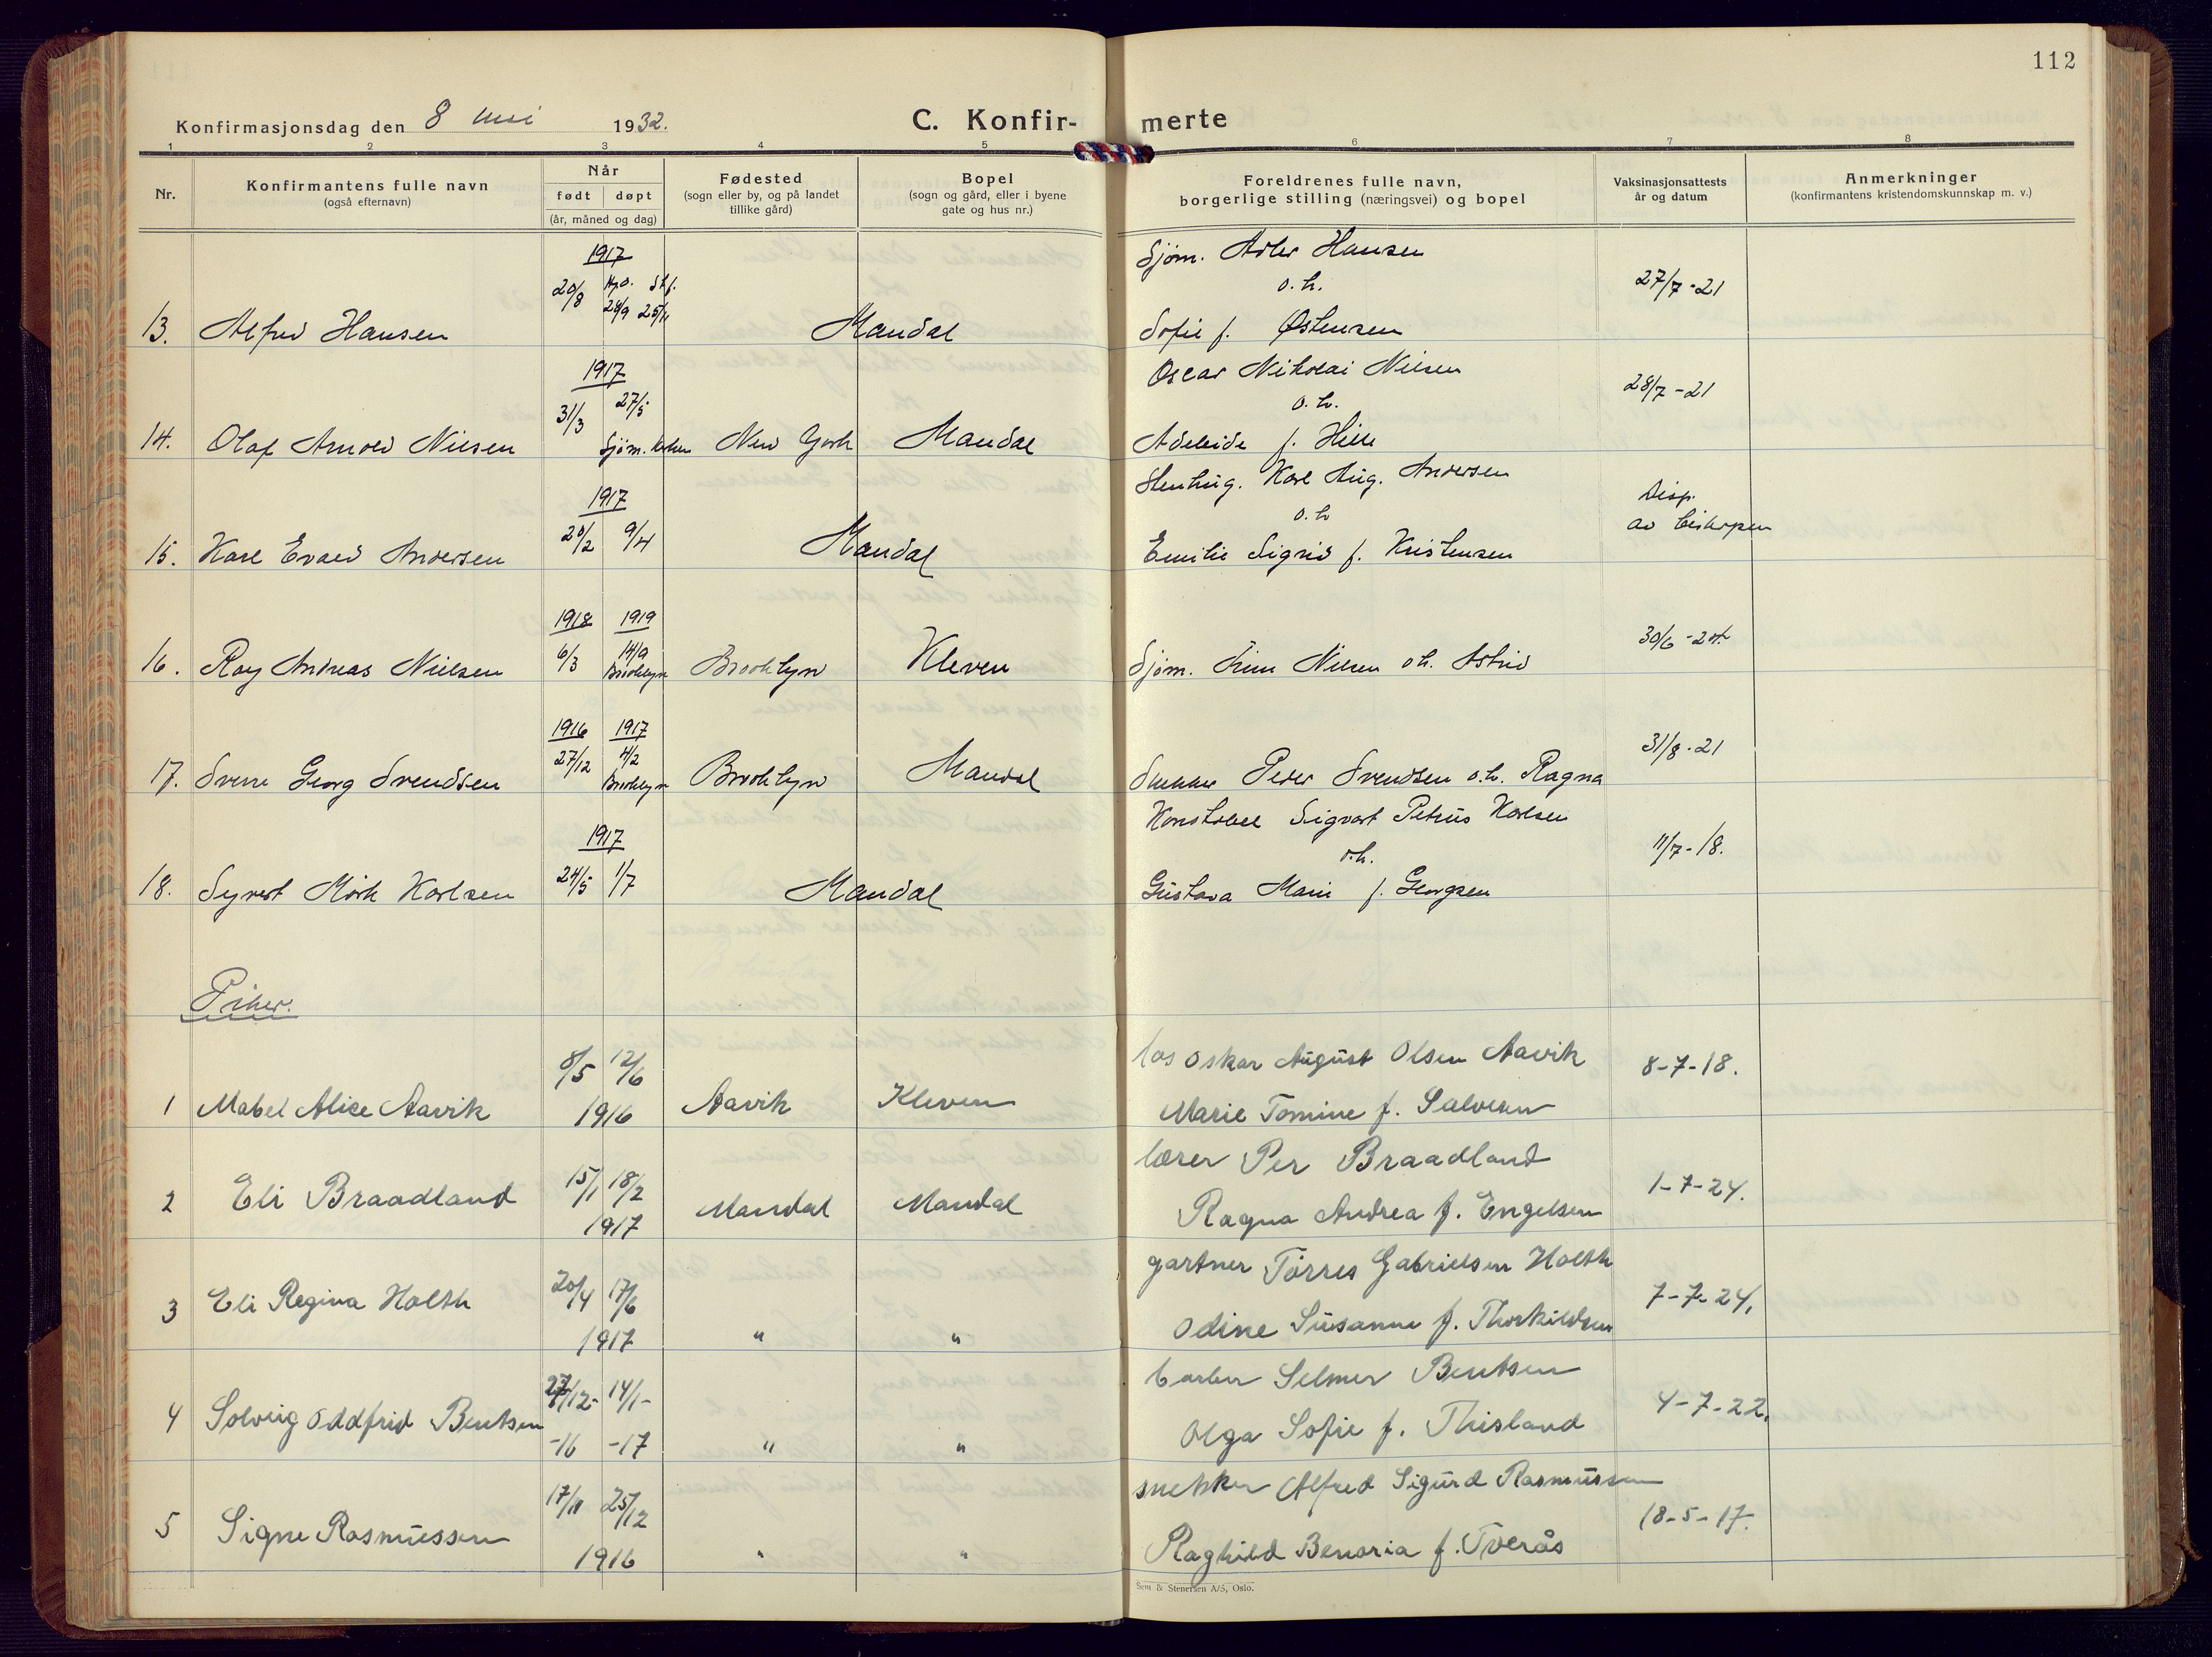 112
Konfirmasjonsdag den 8 mai 1932.
C. Konfir- merte
1 2 3 4 5 6 7 8
Nr.
Konfirmantens fulle navn
(også efternavn)
Når
født døpt
(år, måned og dag)
Fødested
(sogn eller by, og på landet
tillike gård)
Bopel
(sogn og gård, eller i byene
gate og hus nr.)
Foreldrenes fulle navn,
borgerlige stilling (næringsvei) og bopel
Vaksinasjonsattests
år og datum
Anmerkninger
(konfirmantens kristendomskunnskap m. v.)
1917
Sjøm. Adler Hansen
20/8 28/9 25/11
o. h.
27/7-21
13. Alfred Hansen Mandal Sofie f. Østensen
1917
Oscar Nikolai Nilsen
31/3 27/5
o. h.
28/7-21
14. Olaf Arnold Nilsen Sjøm. kirken New York Mandal Adeleide f. Hille
1917
Karl Aug. Andersen
20/2 9/4
o. h
Disp.
av biskopen
15. Karl Evald Andersen Mandal Emilie Sigrid f. Kristensen
1918 1919
6/3 14/9
Brooklyn
30/6-24.
16. Roy Andreas Nielsen Brooklyn Kleven Sjøm. Nilsen o. h. Astrid
1916 1917
27/12 4/2
Brooklyn
31/8-21
17. Sverre Georg Svendsen Brooklyn Mandal Peder Svendsen o. h. Ragna
1917
Konstabel Sigvart Petrus Karlsen
24/5 1/7
o. h.
11/7-18.
18. Syvert Mørk Karlsen Mandal Gustava Marie f. Georgsen
Piker.
8/5 12/6
los Oskar August Olsen Aavik
8-7-18.
1 Mabel Alice Aavik 1916 Aavik Kleven Marie Tomine f. Salvesen
15/1 18/2
lærer Per Braadland
1-7-24.
2 Eli Braadland 1917 Mandal Mandal Ragna Andrea f. Engelsen
20/4 17/6
gartner Torres Gabrielsen Holth
7-7-24.
3 Eli Regina Holth 1917 " " Odine Susanne f. Thorkildsen
27/12- 14/1-
barber Selmer Bentsen
4-7-22.
4 Solveig Oddfrid Bentsen -16 -17 " " Olga Sofie f. Thisland
17/11 25/12
snekker Alfred Sigurd Rasmussen
18-5-17.
5 Signe Rasmussen 1916 " " Raghild Benoria f. Tverås
Sem & Stenersen A/S, Oslo.